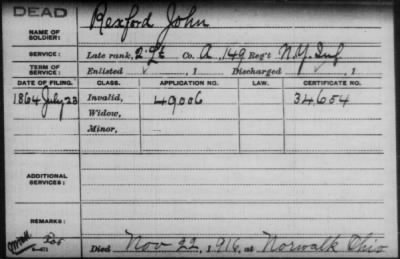 DEAD
NAME OF SOLDIER: Rexford John
SERVICE: Late rank, 2" Lt Co. A, 149 Reg't N.Y. Inf
TERM OF SERVICE: Enlisted , 1 Discharged , 1
DATE OF FILING. CLASS. APPLICATION NO. LAW. CERTIFICATE NO.
1864 July 28 Invalid, 49006 34654
Widow,
Minor,
ADDITIONAL SERVICES:
REMARKS:
Died Nov 22, 1916, at Norwalk Ohio